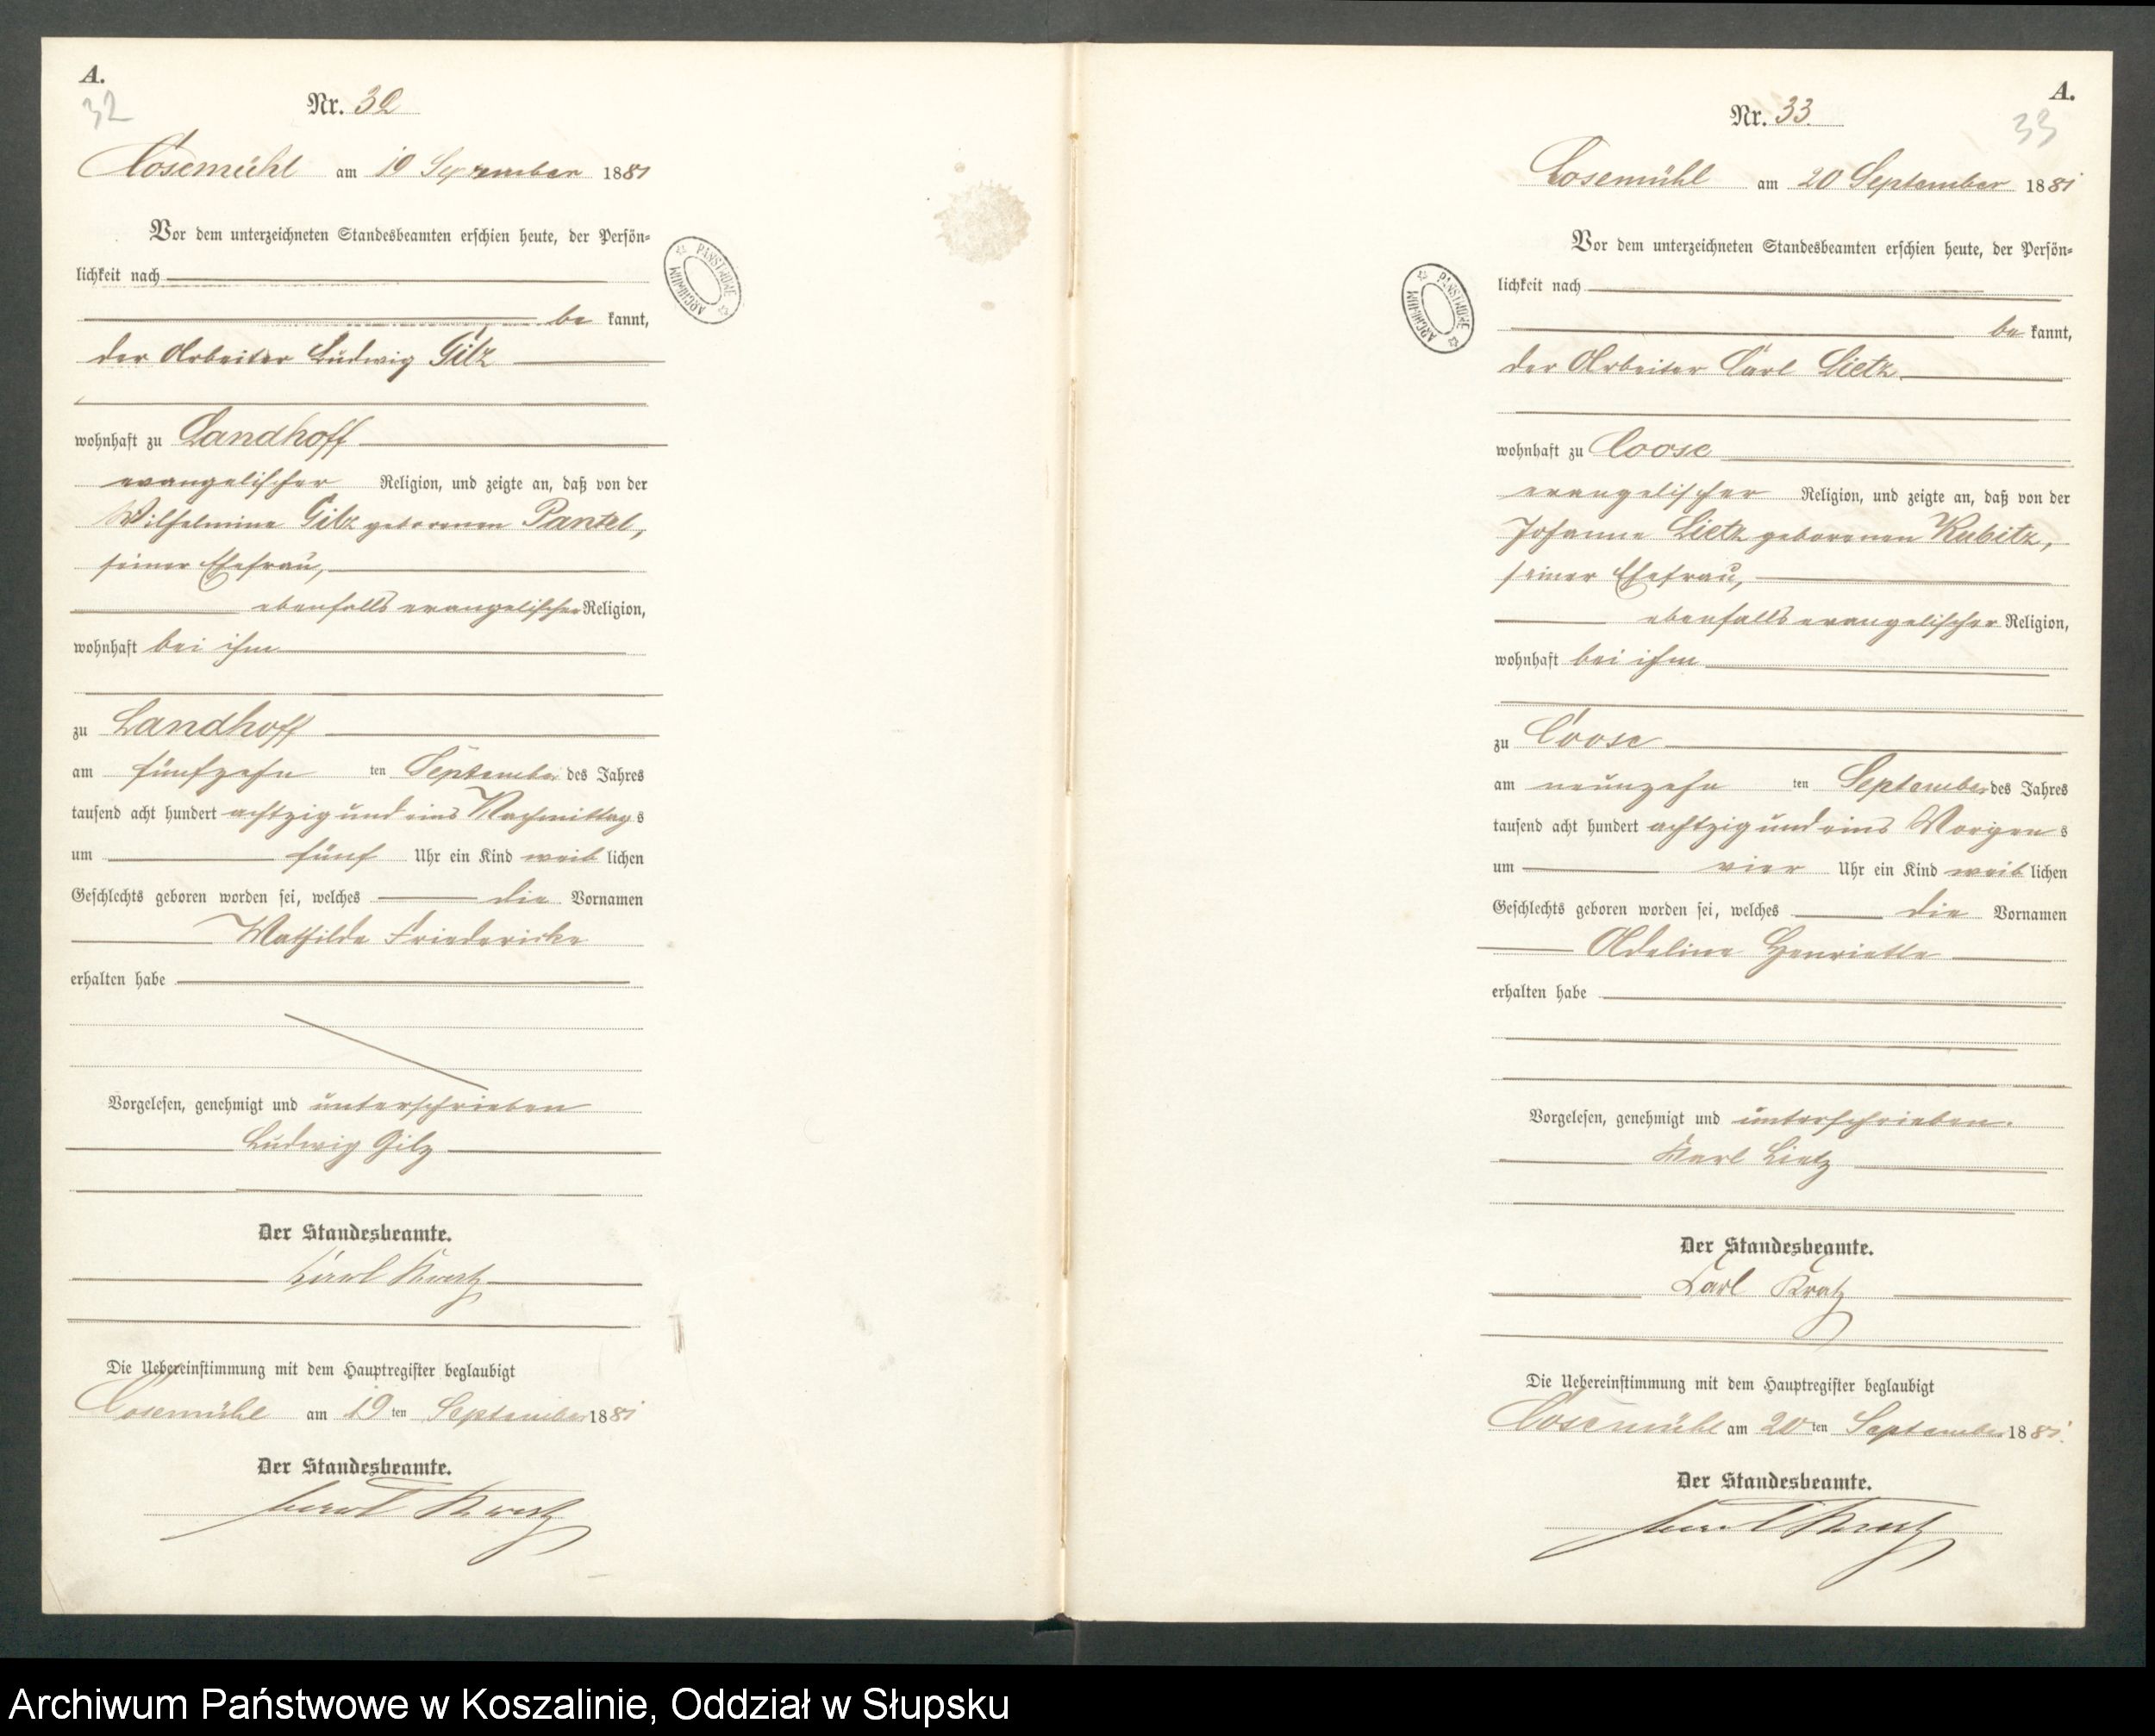 A.
32
Nr. 32
Cosemühl am 19 September 1881
Vor dem unterzeichneten Standesbeamten erschien heute, der Persön-
lichkeit nach
be kannt,
der Arbeiter Ludwig Gilz
wohnhaft zu Landhoff
evangelischer Religion, und zeigte an, daß von der
Wilhelmine Gilz geborenen Pantel,
seiner Ehefrau,
ebenfalls evangelischer Religion,
wohnhaft bei ihm
zu Landhoff
am fünfzehn ten September des Jahres
tausend acht hundert achtzig und eins Nachmittag s
um fünf Uhr ein Kind weib lichen
Geschlechts geboren worden sei, welches die Vornamen
Mathilde Friedericke
erhalten habe
Vorgelesen, genehmigt und unterschrieben
Ludwig Gilz
Der Standesbeamte.
Carl Kratz
Die Uebereinstimmung mit dem Hauptregister beglaubigt
Cosemühl am 19 ten September 1881
Der Standesbeamte.
Carl Kratz
ARCHIWUM PAŃSTWOWE
A.
33
Nr. 33.
Cosemühl am 20 September 1881
Vor dem unterzeichneten Standesbeamten erschien heute, der Persön-
lichkeit nach
be kannt,
der Arbeiter Carl Lietz
wohnhaft zu Coose
evangelischer Religion, und zeigte an, daß von der
Johanne Lietz geborenen Kubitz,
seiner Ehefrau,
ebenfalls evangelischer Religion,
wohnhaft bei ihm
zu Coose
am neunzehn ten September des Jahres
tausend acht hundert achtzig und eins Morgen s
um vier Uhr ein Kind weib lichen
Geschlechts geboren worden sei, welches die Vornamen
Adeline Henriette
erhalten habe
Vorgelesen, genehmigt und unterschrieben.
Karl Lietz
Der Standesbeamte.
Carl Kratz
Die Uebereinstimmung mit dem Hauptregister beglaubigt
Cosemühl am 20 ten September 1881.
Der Standesbeamte.
Carl Kratz
ARCHIWUM PAŃSTWOWE
Archiwum Państwowe w Koszalinie, Oddział w Słupsku